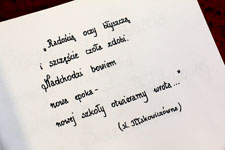 „Radością oczy błyszczą,
i szczęście czoła zdobi.
Nadchodzi bowiem
nowa epoka -
nowej szkoły otwieramy wrota..."
(K. Iłłakowiczówna)